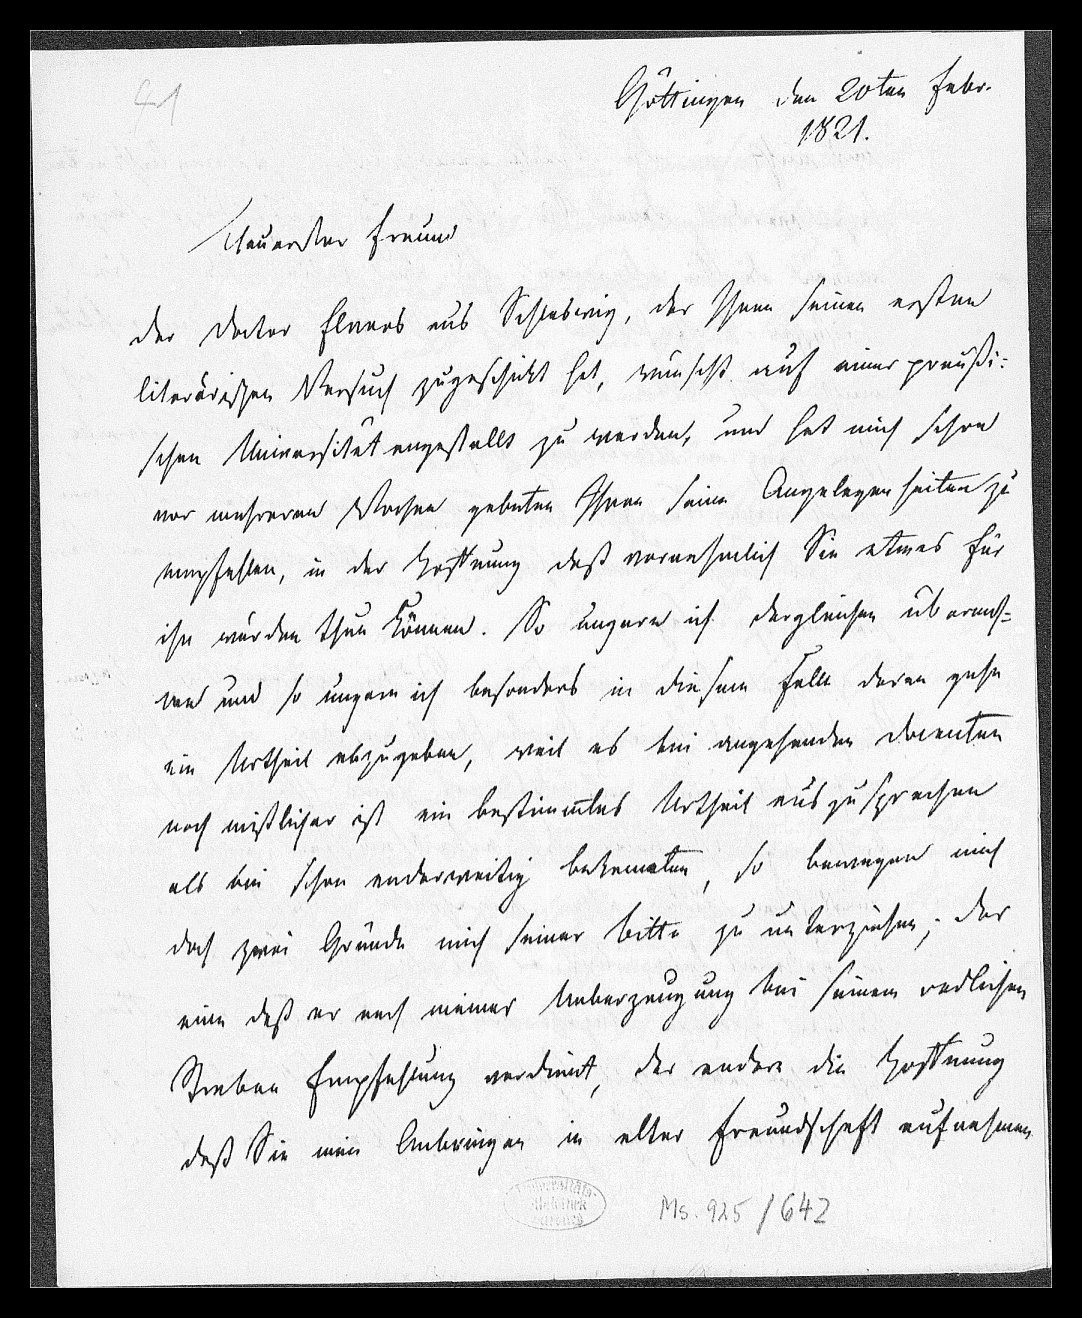 41
Göttingen den 20ten Febr.
1821.
Theuerster Freund
Der Doctor Elvers aus Schleswig, der Ihnen seinen ersten
literärischen Versuch zugeschickt hat, wünscht auf einer preußi-
schen Universität angestellt zu werden, und hat mich schon
vor mehreren Wochen gebeten Ihnen seine Angelegenheiten zu
empfehlen, in der Hoffnung daß vornehmlich Sie etwas für
ihn würden thun können. So ungern ich dergleichen überneh-
me und so ungern ich besonders in diesem Falle daran gehe
ein Urtheil abzugeben, weil es bei angehenden Docenten
noch mißlicher ist ein bestimmtes Urtheil auszusprechen
als bei schon anderweitig bekannten, so bewegen mich
doch zwei Gründe mich seiner Bitte zu unterziehen; der
eine daß er nach meiner Ueberzeugung bei seinem redlichen
Streben Empfehlung verdient, der andere die Hoffnung
daß Sie mein Anbringen in alter Freundschaft aufnehmen
Universitäts-
Bibliothek
Marburg
Ms. 925/642